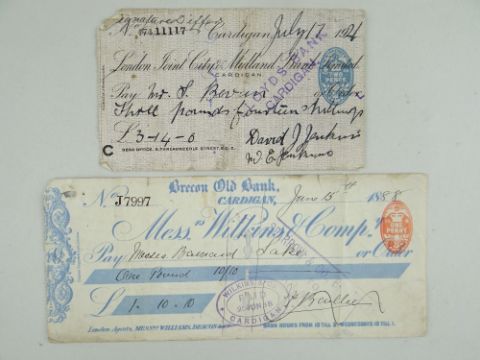 Signature Differs
No. 11117 Cardigan July 17 1924
London Joint City & Midland Bank Limited
CARDIGAN
LLOYDS BANK
CARDIGAN
TWO PENCE
Pay Mr. S. Bevan or Order
Three pounds fourteen shillings
£3-14-0 David J Jenkins
C HEAD OFFICE, 5, THREADNEEDLE STREET, E.C.2. W E Jenkins
Brecon Old Bank,
No. J7997 CARDIGAN, June 15th 1888
Mess.rs Wilkins & Comp.y
ONE PENNY
Pay Messrs or Order
One Pound 10/10
£1-10-10
WILKINS & CO
PAID
CARDIGAN
London Agents, MESSRS WILLIAMS, DEACON
BANK HOURS FROM 10 TILL 3. WEDNESDAYS 10 TILL 1.